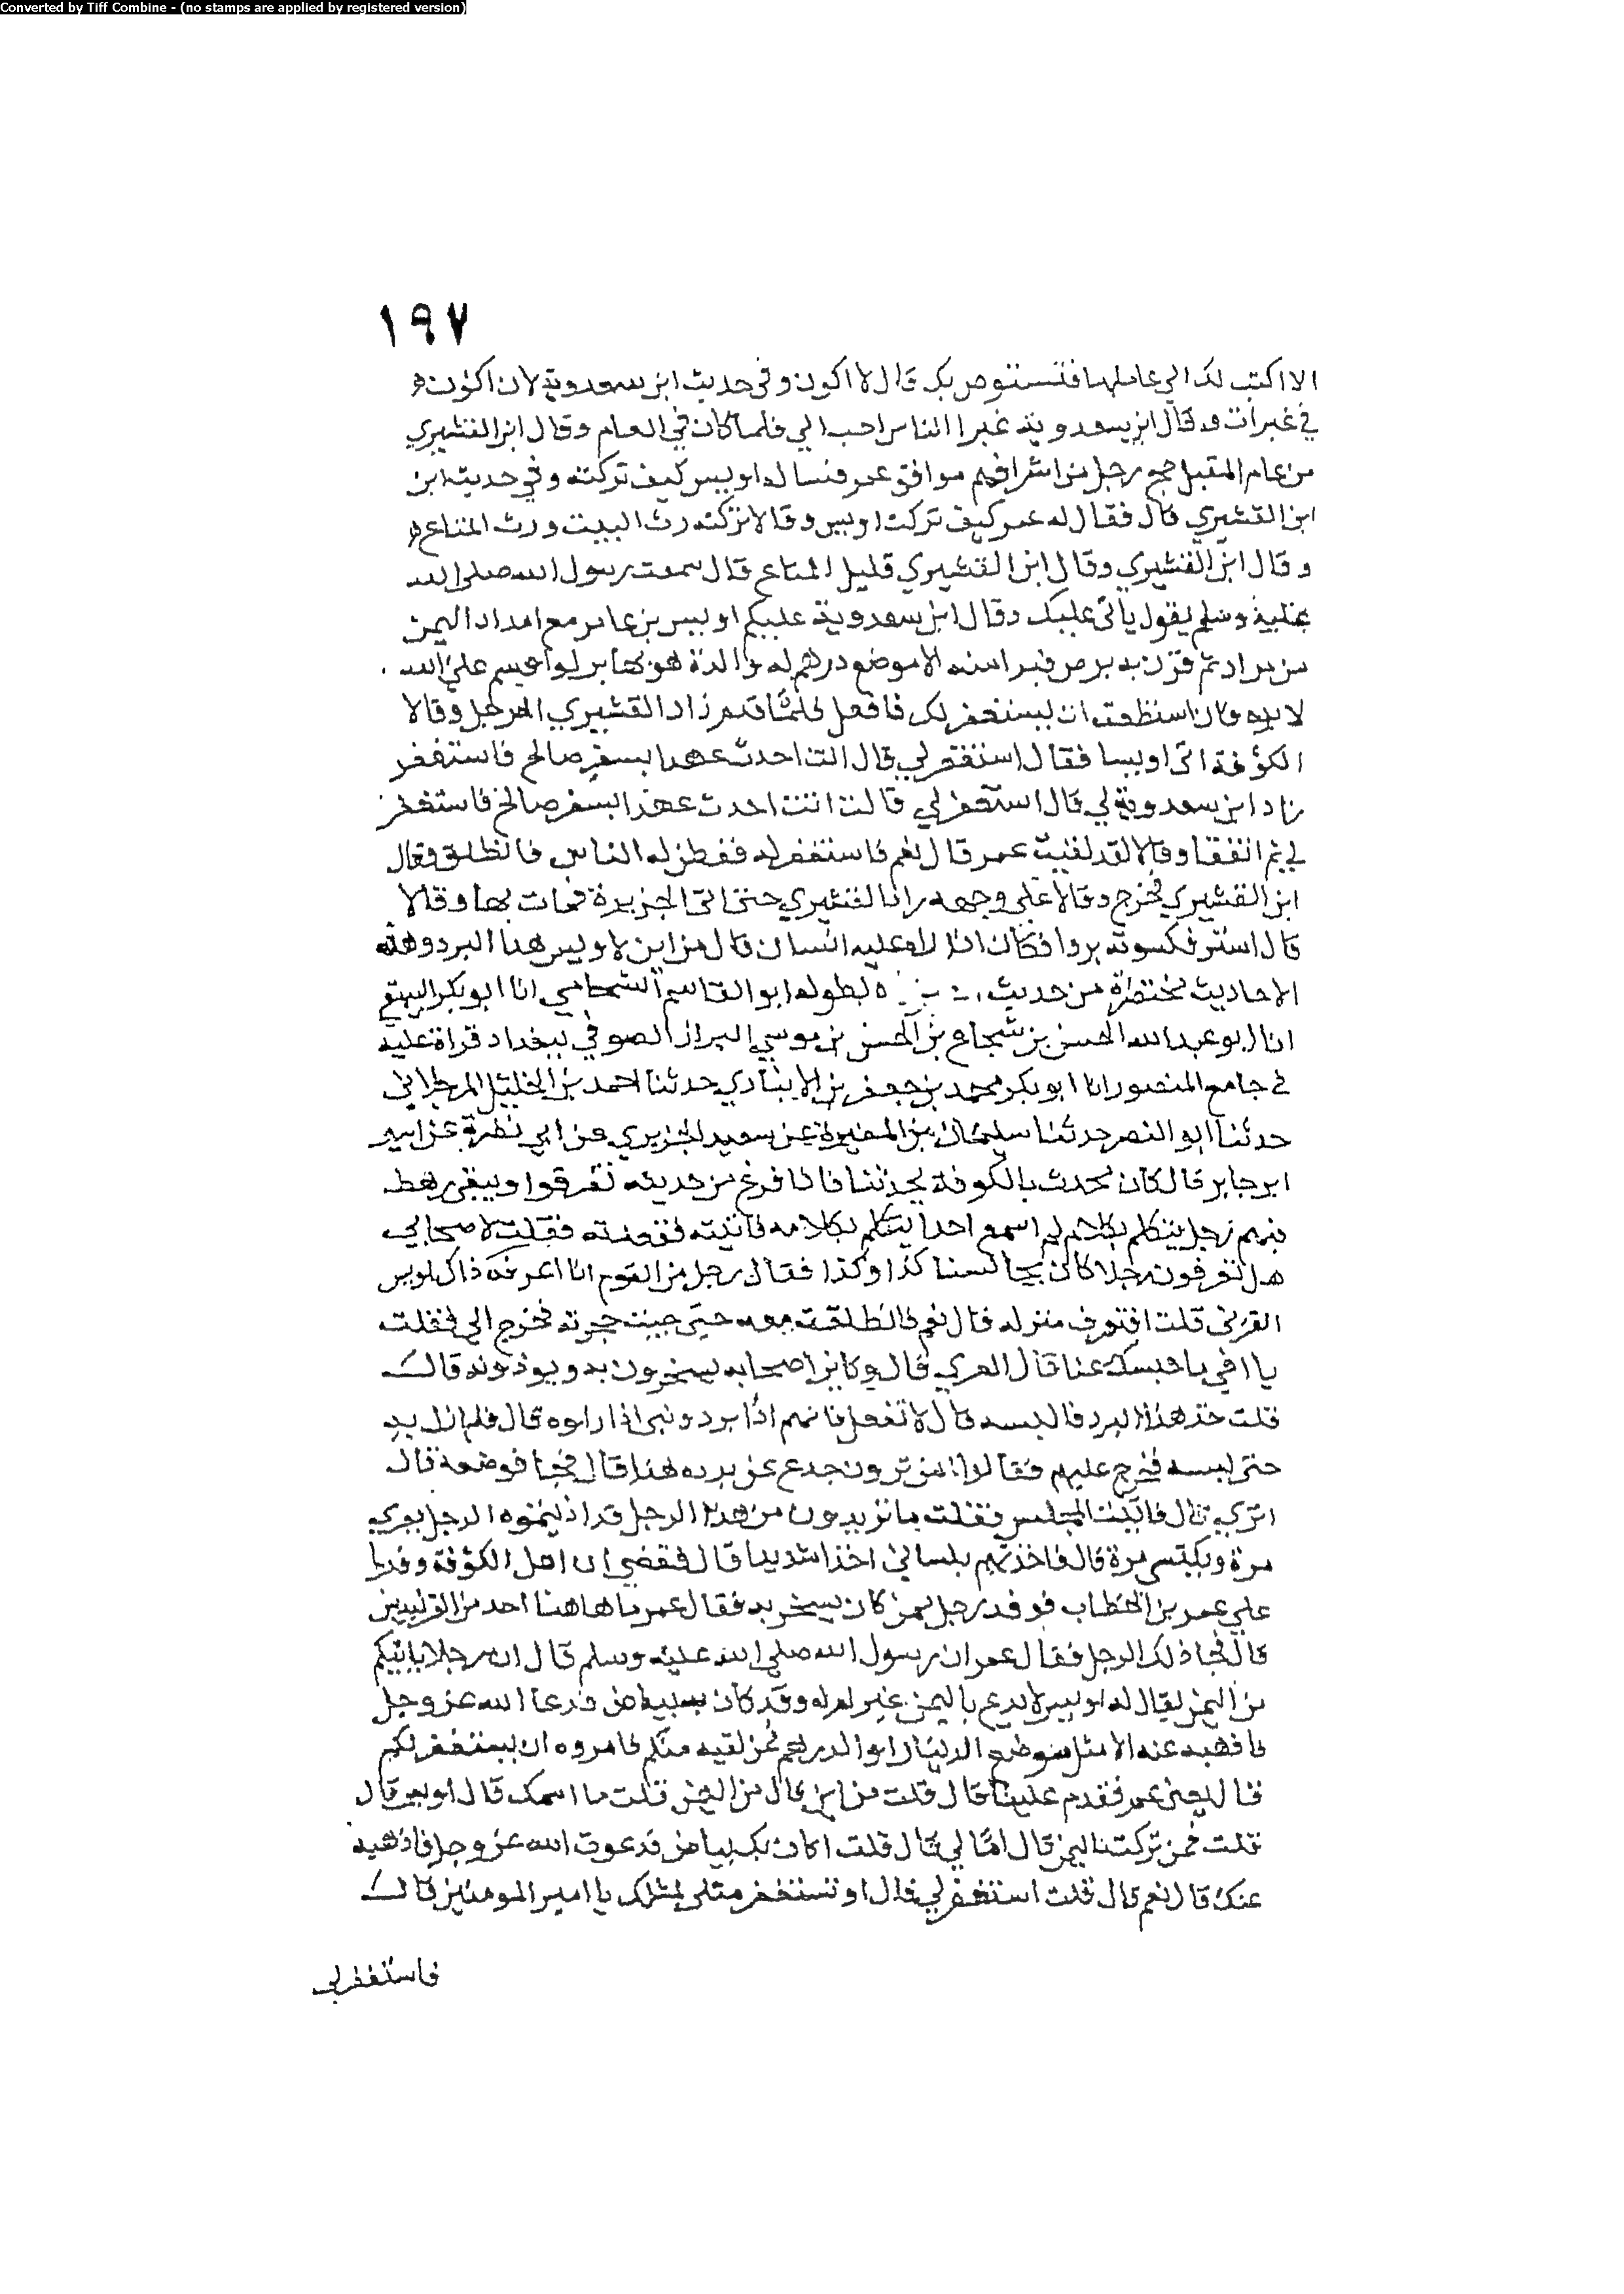 Converted by Tiff Combine - (no stamps are applied by registered version)
١٩٧
الا اكتب لك الي عاملها فتستوص بك قال لا اكون وفي حديث ابن سعدوية لان اكون
في غبرات وقال ابن سعدوية غبرا الناس احب الي فلما كان في العام وقال ابن القشيري
من عام المقبل حج رجل من اشرافهم موافق عمر فساله اويس كيف تركته وفي حديث ابن
ابن القشيري قال فقال له عمر كيف تركت اويس وقالا تركته رث البيت ورث المتاع
وقال ابن القشيري وقال ابن القشيري قليل المتاع قال سمعت رسول الله صلى الله
عليه وسلم يقول ياتي عليك وقال ابن سعدوية عليكم اويس بن عامر مع امداد اليمن
من مراد ثم قرن به برص فبرا منه الا موضع درهم له والدة هو بها بر لو اقسم على الله
لابره فان استطعت ان يستغفر لك فافعل فلما قدم زاد القشيري الرجل وقالا
الكوفة اتى اويسا فقال استغفر لي قال انت احدث عهدا بسفر صالح فاستغفر
زاد ابن سعدوية لي قال استغفر لي قالت انت احدث عهدا بسفر صالح فاستغفر
لي ثم اتفقا وقالا لقد لقيت عمر قال نعم فاستغفر له ففطن له الناس فانطلق وقال
ابن القشيري فخرج وقالا على وجهه القشيري حتى اتى الجزيرة فمات بها وقالا
قال استر فكسوته بردا فكان اذا راه عليه انسان قال من اين لاويس هذا البرد وهذه
الاحاديث مختصرة من حديث بطوله ابو القاسم الشحامي انا ابو بكر البيهقي
انا ابو عبد الله الحسن بن شجاع بن الحسن بن موسي البزاز الصوفي ببغداد قراة عليه
في جامع المنصور انا ابو بكر محمد بن جعفر بن الانباري حدثنا احمد بن الخليل البرجلاني
حدثنا ابو النصر حدثنا سليمان بن المغيرة عن سعيد الجريري عن ابي نضرة عن اسير
ابن جابر قال كان محدث بالكوفة يحدثنا فاذا فرغ من حديثه تفرقوا ويبقى رهط
فيهم رجل يتكلم بكلام لم اسمع احدا يتكلم بكلامه فاتيته ففقدته فقلت لاصحابي
هل تعرفون رجلا كان يجالسنا كذا وكذا فقال رجل من القوم انا اعرفه ذاك اويس
القرني قلت افتعرف منزله قال نعم فانطلقت معه حتى جيت حجرته فخرج الي فقلت
يا اخي ما حبسك عنا قال العري قال وكان اصحابه يسخرون به ويوذونه قال
قلت خذ هذا البرد فالبسه قال لا تفعل فانهم اذا يردونني اذا راوه قال فلم ازل به
حتى لبسه فخرج عليهم فقالوا من ترون خدع عن برده هذا قال فجا فوضعه قال
اترى قال فاتيت المجلس فقلت ما تريدون من هذا الرجل قد اذيتموه الرجل يعري
مرة ويكتسي مرة قال فاخذتهم بلساني اخذا شديدا قال فقضي ان اهل الكوفة وفدوا
علي عمر بن الخطاب فوفد رجل ممن كان يسخر به فقال عمر ما هاهنا احد من القرنيين
قال فجا ذلك الرجل فقال عمر ان رسول الله صلى الله عليه وسلم قال ان رجلا ياتيكم
من اليمن يقال له اويس لا يدع باليمن غير ام له وقد كان به بياض فدعا الله عز وجل
فاذهبه عنه الا مثل موضع الدينار او الدرهم فمن لقيه منكم فامروه ان يستغفر لكم
قال يعني عمر فقدم علينا قال قلت من اين قال من اليمن قلت ما اسمك قال اويس قال
قلت فمن تركت باليمن قال اما لي قال قلت اكان بك بياض فدعوت الله عز وجل فاذهبه
عنك قال نعم قال قلت استغفر لي قال او يستغفر مثلي لمثلك يا امير المومنين قال
فاستغفر لي